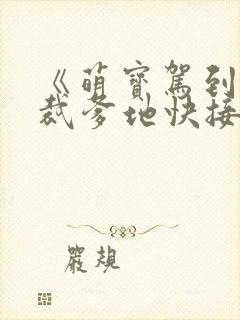 《萌寶駕到
裁爹地快接
嚴規